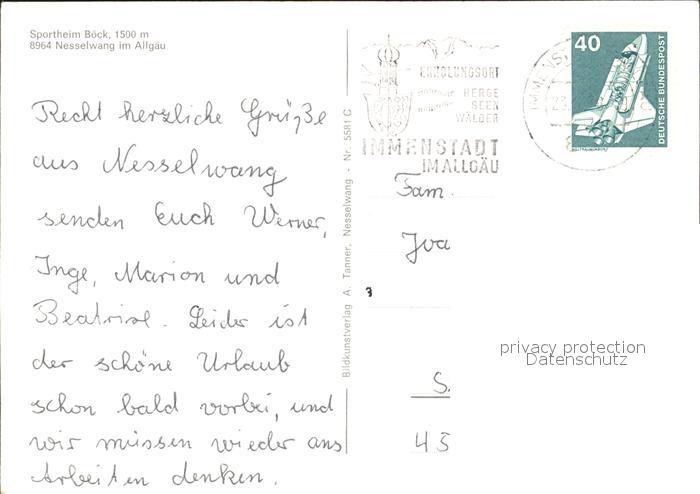 Sportheim Böck, 1500 m
8964 Nesselwang im Allgäu
Recht herzliche Grüße
aus Nesselwang
senden Euch Werner,
Inge, Marion und
Beatrise. Leider ist
der schöne Urlaub
schon bald vorbei, und
wir müssen wieder ans
Arbeiten denken.
Bildkunstverlag A. Tanner, Nesselwang - Nr. 5581 C
ERHOLUNGSORT
BERGE
SEEN
WÄLDER
IMMENSTADT
IM ALLGÄU
40
DEUTSCHE BUNDESPOST
Fam.
Iva
S.
45
privacy protection
Datenschutz